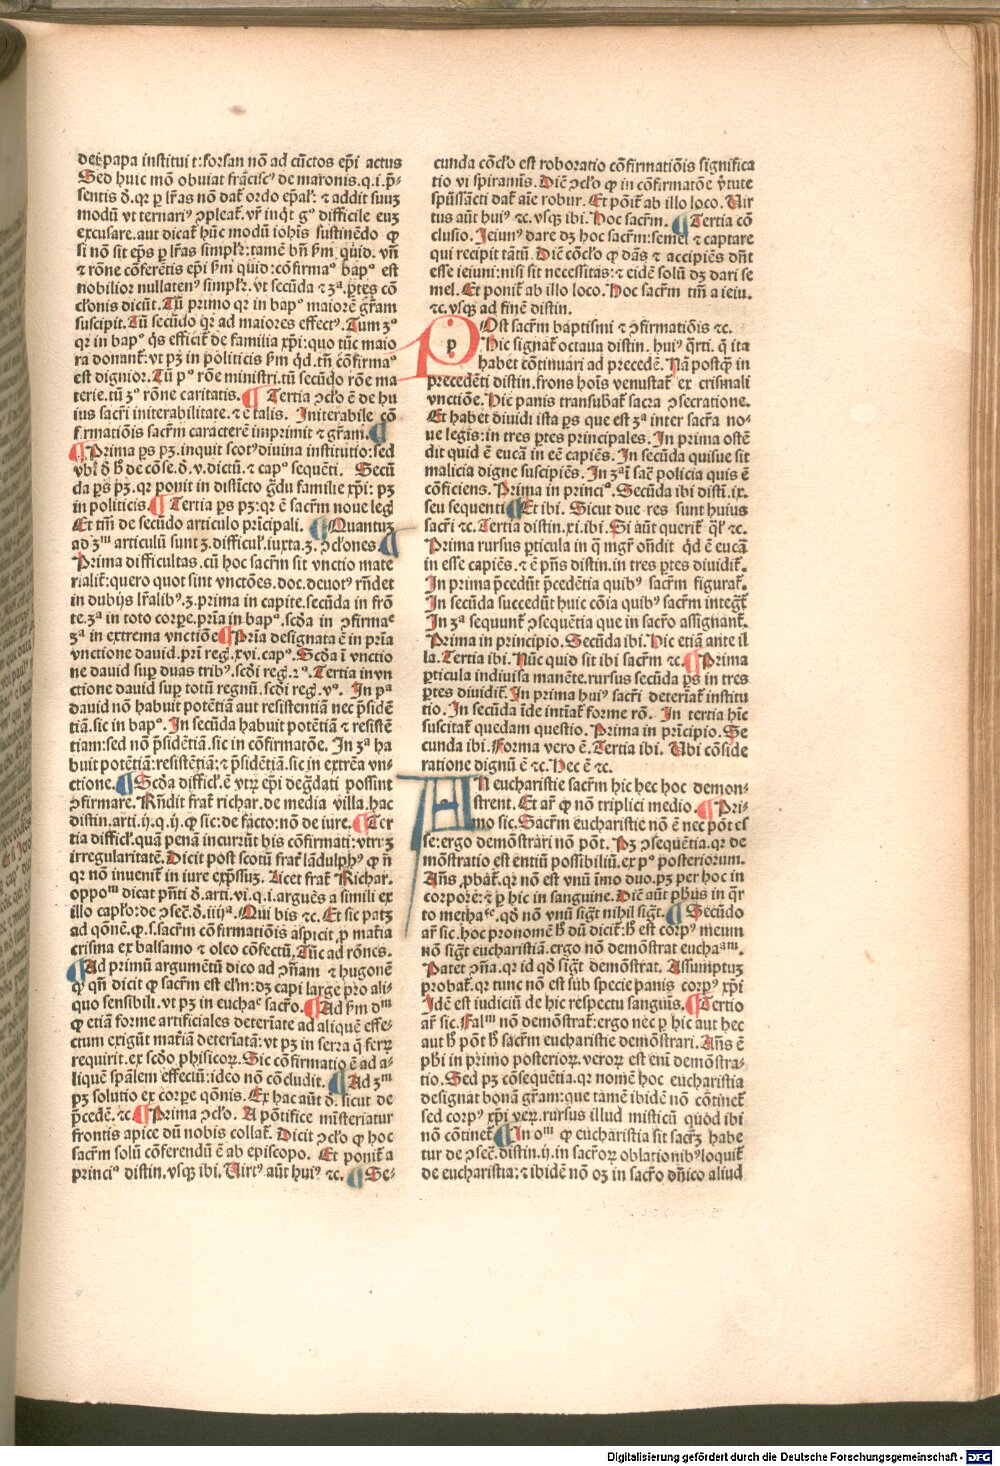 det papa institui t: forsan nō ad cūctos ep̄i actus
Sed huic mō obuiat frācisc⁹ de maronis. q. i. p̄-
sentis d̄. qr p lr̄as nō dat̄ ordo ep̄al̄: ⁊ addit suuȝ
modū vt ternari⁹ ↄpleat̄. vn̄ inqt g⁰ difficile euȝ
excusare. aut dicat̄ hūc modū iohīs sustinēdo ꝙ
si nō sit ep̄s p lr̄as simplr̄: tamē bn̄ ẜm quid. vn̄
⁊ rōne cōferētis ep̄i ẜm quid: cōfirmaᵒ bapᵒ est
nobilior nullaten⁹ simplr̄. vt secūda ⁊ ȝᵃ. p̱tes cō
cl̄onis dicūt. Tū primo qr in bapᵒ maiorē gr̄am
suscipit. Tū secūdo qr ad maiores effect⁹. Tum ȝᵒ
qr in bapᵒ q̄s efficit̄ de familia xp̄i: quo tūc maio
ra donant̄: vt pȝ in politicis ẜm qd. tn̄ cōfirmaᵒ
est dignior. Tū pᵒ rōe ministri. tū secūdo rōe ma
terie. tū ȝᵒ rōne caritatis. ¶ Tertia ↄcl̄o ē de hu
ius sacr̄i initerabilitate. ⁊ ē talis. Initerabile cō
firmatiōis sacr̄m caracterē imprimit ⁊ gr̄am. ¶
¶ Prima ps pȝ. inquit scot⁹ diuina institutio: sed
vbi d̄ ꝑ de cōse. d̄. v. dictū. ⁊ capᵒ sequēti. Secū
da ps pȝ. qr ponit in distīcto gr̄du familie xp̄i: pȝ
in politicis. ¶ Tertia ps pȝ: qr ē sacr̄m noue legꝭ
Et tm̄ de secūdo articulo prīcipali. ¶ Quantuȝ
ad ȝᵐ articulū sunt ȝ. difficul̄. iuxta. ȝ. ↄcl̄ones ¶
Prima difficultas. cū hoc sacr̄m sit vnctio mate
rialit̄: quero quot sint vnctōes. doc. deuot⁹ rn̄det
in dubijs lr̄alib⁹. ȝ. prima in capite. secūda in frō
te. ȝᵃ in toto corꝑe. prīa in bapᵒ. scd̄a in ↄfirmaᵉ
ȝᵃ in extrema vnctiōe ¶ Prīa designata ē in prīa
vnctione dauid. prī reg̱. xvi. capᵒ. Scd̄a ī vnctio
ne dauid suꝑ duas trib⁹. scd̄i reg̱. 2ᵒ. Tertia in vn
ctione dauid suꝑ totū regnū. scd̄i reg̱. vᵒ. In pᵃ
dauid nō habuit potētiā aut resistentiā nec p̄sidē
tiā. sic in bapᵒ. In secūda habuit potētiā ⁊ resistē
tiam: sed nō p̄sidētiā. sic in cōfirmatōe. In ȝᵃ ha
buit potētiā: resistētiā: ⁊ p̄sidētiā. sic in extrēa vn-
ctione. ¶ Scd̄a difficl̄. ē vtꝝ ep̄i deg̱dati possint
ↄfirmare. Rn̄dit frat̄ richar. de media villa. hac
distin. arti. ij. q. ij. ꝙ sic: de facto: nō de iure. ¶ Ter
tia difficl̄. quā penā incurrūt his cōfirmati: vtrī ȝ
irregularitatē. Dicit post scotū frat̄ lādulph⁹ ꝙ n̄
qr nō inuenit̄ in iure exp̄ssuȝ. Licet frat̄ Richar.
oppoᵐ dicat pn̄ti d̄. arti. vi. q. i. arguēs a simili ex
illo capl̄o: de ↄsec̄. d̄. iiijᵃ. Qui bis ⁊c. Et sic patȝ
ad qōnē. ꝙ. s. sacr̄m cōfirmatiōis aspicit ꝓ mat̄ia
crisma ex balsamo ⁊ oleo cōfectū. Tūc ad rōnes.
¶ Ad primū argumētū dico ad ↄn̄am ⁊ hugonē
ꝙ qn̄ dicit ꝙ sacr̄m est elm̄: dȝ capi large pro ali-
quo sensibili. vt pȝ in euchaᵉ sacr̄o. ¶ Ad ẜm dᵐ
ꝙ etiā forme artificiales determīate ad aliquē effe-
ctum exigūt mat̄iā determīatā: vt pȝ in serra q̄ ferrꝝ
requirit. ex scd̄o phisicoꝝ. Sic cōfirmatio ē ad a-
liquē spālem effectū: ideo nō cōcludit. ¶ Ad ȝᵐ
pȝ solutio ex corꝑe qōnis. Ex hac aūt d̄. sicut de
p̄cedē. ⁊c. ¶ Prima ↄcl̄o. A pōtifice mīsteriatur
frontis apice dū nobis collat̄. Dicit ↄcl̄o ꝙ hoc
sacr̄m solū cōferendū ē ab episcopo. Et ponit̄ a
princiᵒ distin. vsq̄ ibi. Uirt⁹ aūt hui⁹ ⁊c. ¶ Se-
cunda cōcl̄o est roboratio cōfirmatiōis significa
tio vi spiramīs. Diē ↄcl̄o ꝙ in cōfirmatōe v̄tute
spūssācti dat̄ aīe robur. Et pōit̄ ab illo loco. Uir
tus aūt hui⁹ ⁊c. vsq̄ ibi. Hoc sacr̄m. ¶ Tertia cō
clusio. Ieiun⁹ dare dȝ hoc sacr̄m: semel ⁊ captare
qui recipit tātū. Diē cōcl̄o ꝙ dās ⁊ accipiēs dn̄t
esse ieiuni: nisi sit necessitas: ⁊ eidē solū dȝ dari se
mel. Et ponit̄ ab illo loco. Hoc sacr̄m tm̄ a ieiu.
⁊c. vsq̄ ad finē distin.
POst sacr̄m baptismi ⁊ ↄfirmatiōis ⁊c.
Hic signat̄ octaua distin. hui⁹ q̄rti. q̄ ita
habet cōtinuari ad precedē. Nā postq̄ in
precedēti distin. frons hoīs venustat̄ ex crismali
vnctiōe. Hic panis transubat̄ sacra ↄsecratione.
Et habet diuidi ista ps que est ȝᵃ inter sacr̄a no-
ue legis: in tres p̱tes principales. In prima ostē
dit quid ē eucā in eē capiēs. In secūda quisue sit
malicia digne suscipiēs. In ȝᵃ ī sac̄ policia quis ē
cōficiens. Prima in princiᵒ. Secūda ibi disti. ix.
seu sequenti ¶ Et ibi. Sicut due res sunt huius
sacr̄i ⁊c. Tertia distin. xi. ibi. Si aūt querit̄ q̄l̄ ⁊c.
Prima rursus p̱ticula in q̄ mgr̄ on̄dit qd ē eucā
in esse capiēs. ⁊ ē pn̄s distin. in tres p̱tes diuidit̄.
In prima p̄cedūt p̄cedētia quib⁹ sacr̄m figurat̄.
In secūda succedūt huic cōia quib⁹ sacr̄m integr̄t
In ȝᵃ sequunt̄ ↄsequētia que in sacr̄o assignant̄.
Prima in principio. Secūda ibi. Hic etiā ante il
la. Tertia ibi. Nūc quid sit ibi sacr̄m ⁊c. ¶ Prima
p̱ticula indiuisa manēte. rursus secūda ps in tres
p̱tes diuidit̄. In prima hui⁹ sacr̄i determīat̄ institu
tio. In secūda īde intīat̄ forme rō. In tertia hīc
suscitat̄ quedam questio. Prima in prīcipio. Se
cunda ibi. Forma vero ē. Tertia ibi. Ubi cōside
ratione dignū ē ⁊c. Hec ē ⁊c.
AN eucharistie sacr̄m hic hec hoc demon-
strent. Et ar̄ ꝙ nō triplici medio. ¶ Pri-
mo sic. Sacr̄m eucharistie nō ē nec pōt es
se: ergo demōstrari nō pōt. Pȝ ↄsequētia. qr de
mōstratio est entiū possibiliū. ex pᵒ posteriorum.
An̄s ꝓbat̄. qr nō est vnū īmo duo. pȝ per hoc in
corpore: ⁊ p hic in sanguine. Diē aūt ph̄us in q̄r
to methaᵉᵉ. qd̄ nō vnū sig̱t nihil sig̱t. ¶ Secūdo
ar̄ sic. hoc pronomē h̄ dū dicit̄: h̄ est corp⁹ meum
nō sig̱t eucharistiā. ergo nō demōstrat euchaᵃᵐ.
Patet ↄn̄a. qr id qd̄ sig̱t demōstrat. Assumptuȝ
probat̄. qr tunc nō est sub specie panis corp⁹ xp̄i
Idē est iudiciū de hic respectu sanguīs. ¶ Tertio
ar̄ sic. Falᵐ nō demōstrat̄: ergo nec p hic aut hec
aut h̄ pōt h̄ sacr̄m eucharistie demōstrari. An̄s ē
ph̄i in primo posterioꝝ. veroꝝ est enī demōstra-
tio. Sed pȝ cōsequētia. qr nomē hoc eucharistia
designat bonā gr̄am: que tamē ibidē nō cōtinet̄
sed corp⁹ xp̄i veꝝ. rursus illud misticū quod ibi
nō cōtinet̄ ¶ In oᵐ ꝙ eucharistia sit sacr̄ȝ habe
tur de ↄsec̄. distin. ij. in sacr̄oꝝ oblationib⁹ loquit̄
de eucharistia: ⁊ ibidē nō oȝ in sacr̄o dn̄ico aliud
Digitalisierung gefördert durch die Deutsche Forschungsgemeinschaft - DFG